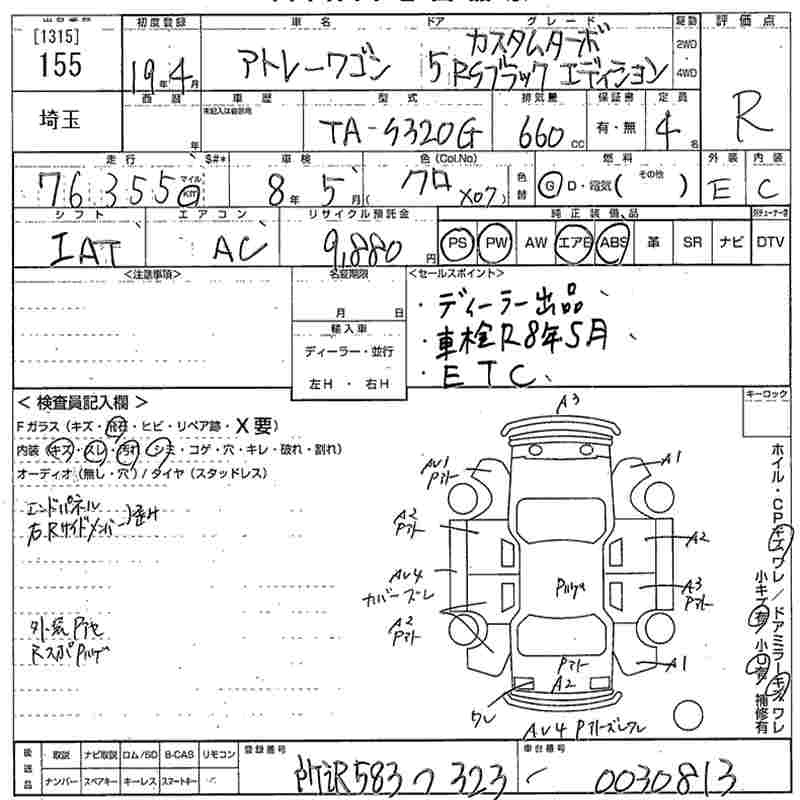 [1315]
155
初度登録 車名 ドア グレード 駆動 評価点
19年4月 アトレーワゴン 5 カスタムターボ 2WD
RSブラックエディション ・4WD
R
埼玉
西暦 車歴 型式 排気量 保証書 定員
未記入は自家用
年 TA-S320G 660cc 有・無 4名
走行 S#* 車検 色(Col.No) 燃料 外装 内装
76,355 マイル km 8年5月 クロ X07 色替 G D・電気 (その他) E C
シフト エアコン リサイクル預託金 純正装備品
IAT AC 9,880円 PS PW AW エアB ABS 革 SR ナビ DTV
<注意事項> 名変期限 <セールスポイント>
月 日
・ディーラー出品
輸入車
・車検R8年5月
ディーラー・並行
・ETC
左H ・ 右H
キーロック
<検査員記入欄>
Fガラス(キズ・飛石・ヒビ・リペア跡・X要)
内装(キズ・スレ・汚れ・シミ・コゲ・穴・キレ・破れ・割れ)
オーディオ(無し・穴)/タイヤ(スタッドレス)
エンドパネル
右Rサイドメンバー
A3
AV1
A1
A2
A2
AV4
カバーズレ
A3
A2
A1
A2
ワレ
AV4
ホイル・CPキズワレ/ドアミラーキズワレ
小キズ有 小U有 補修有
後送品 取説 ナビ取説 ロム/SD B-CAS リモコン 登録番号 車台番号
ナンバー スペアキー キーレス スマートキー
583 つ 323 0030813